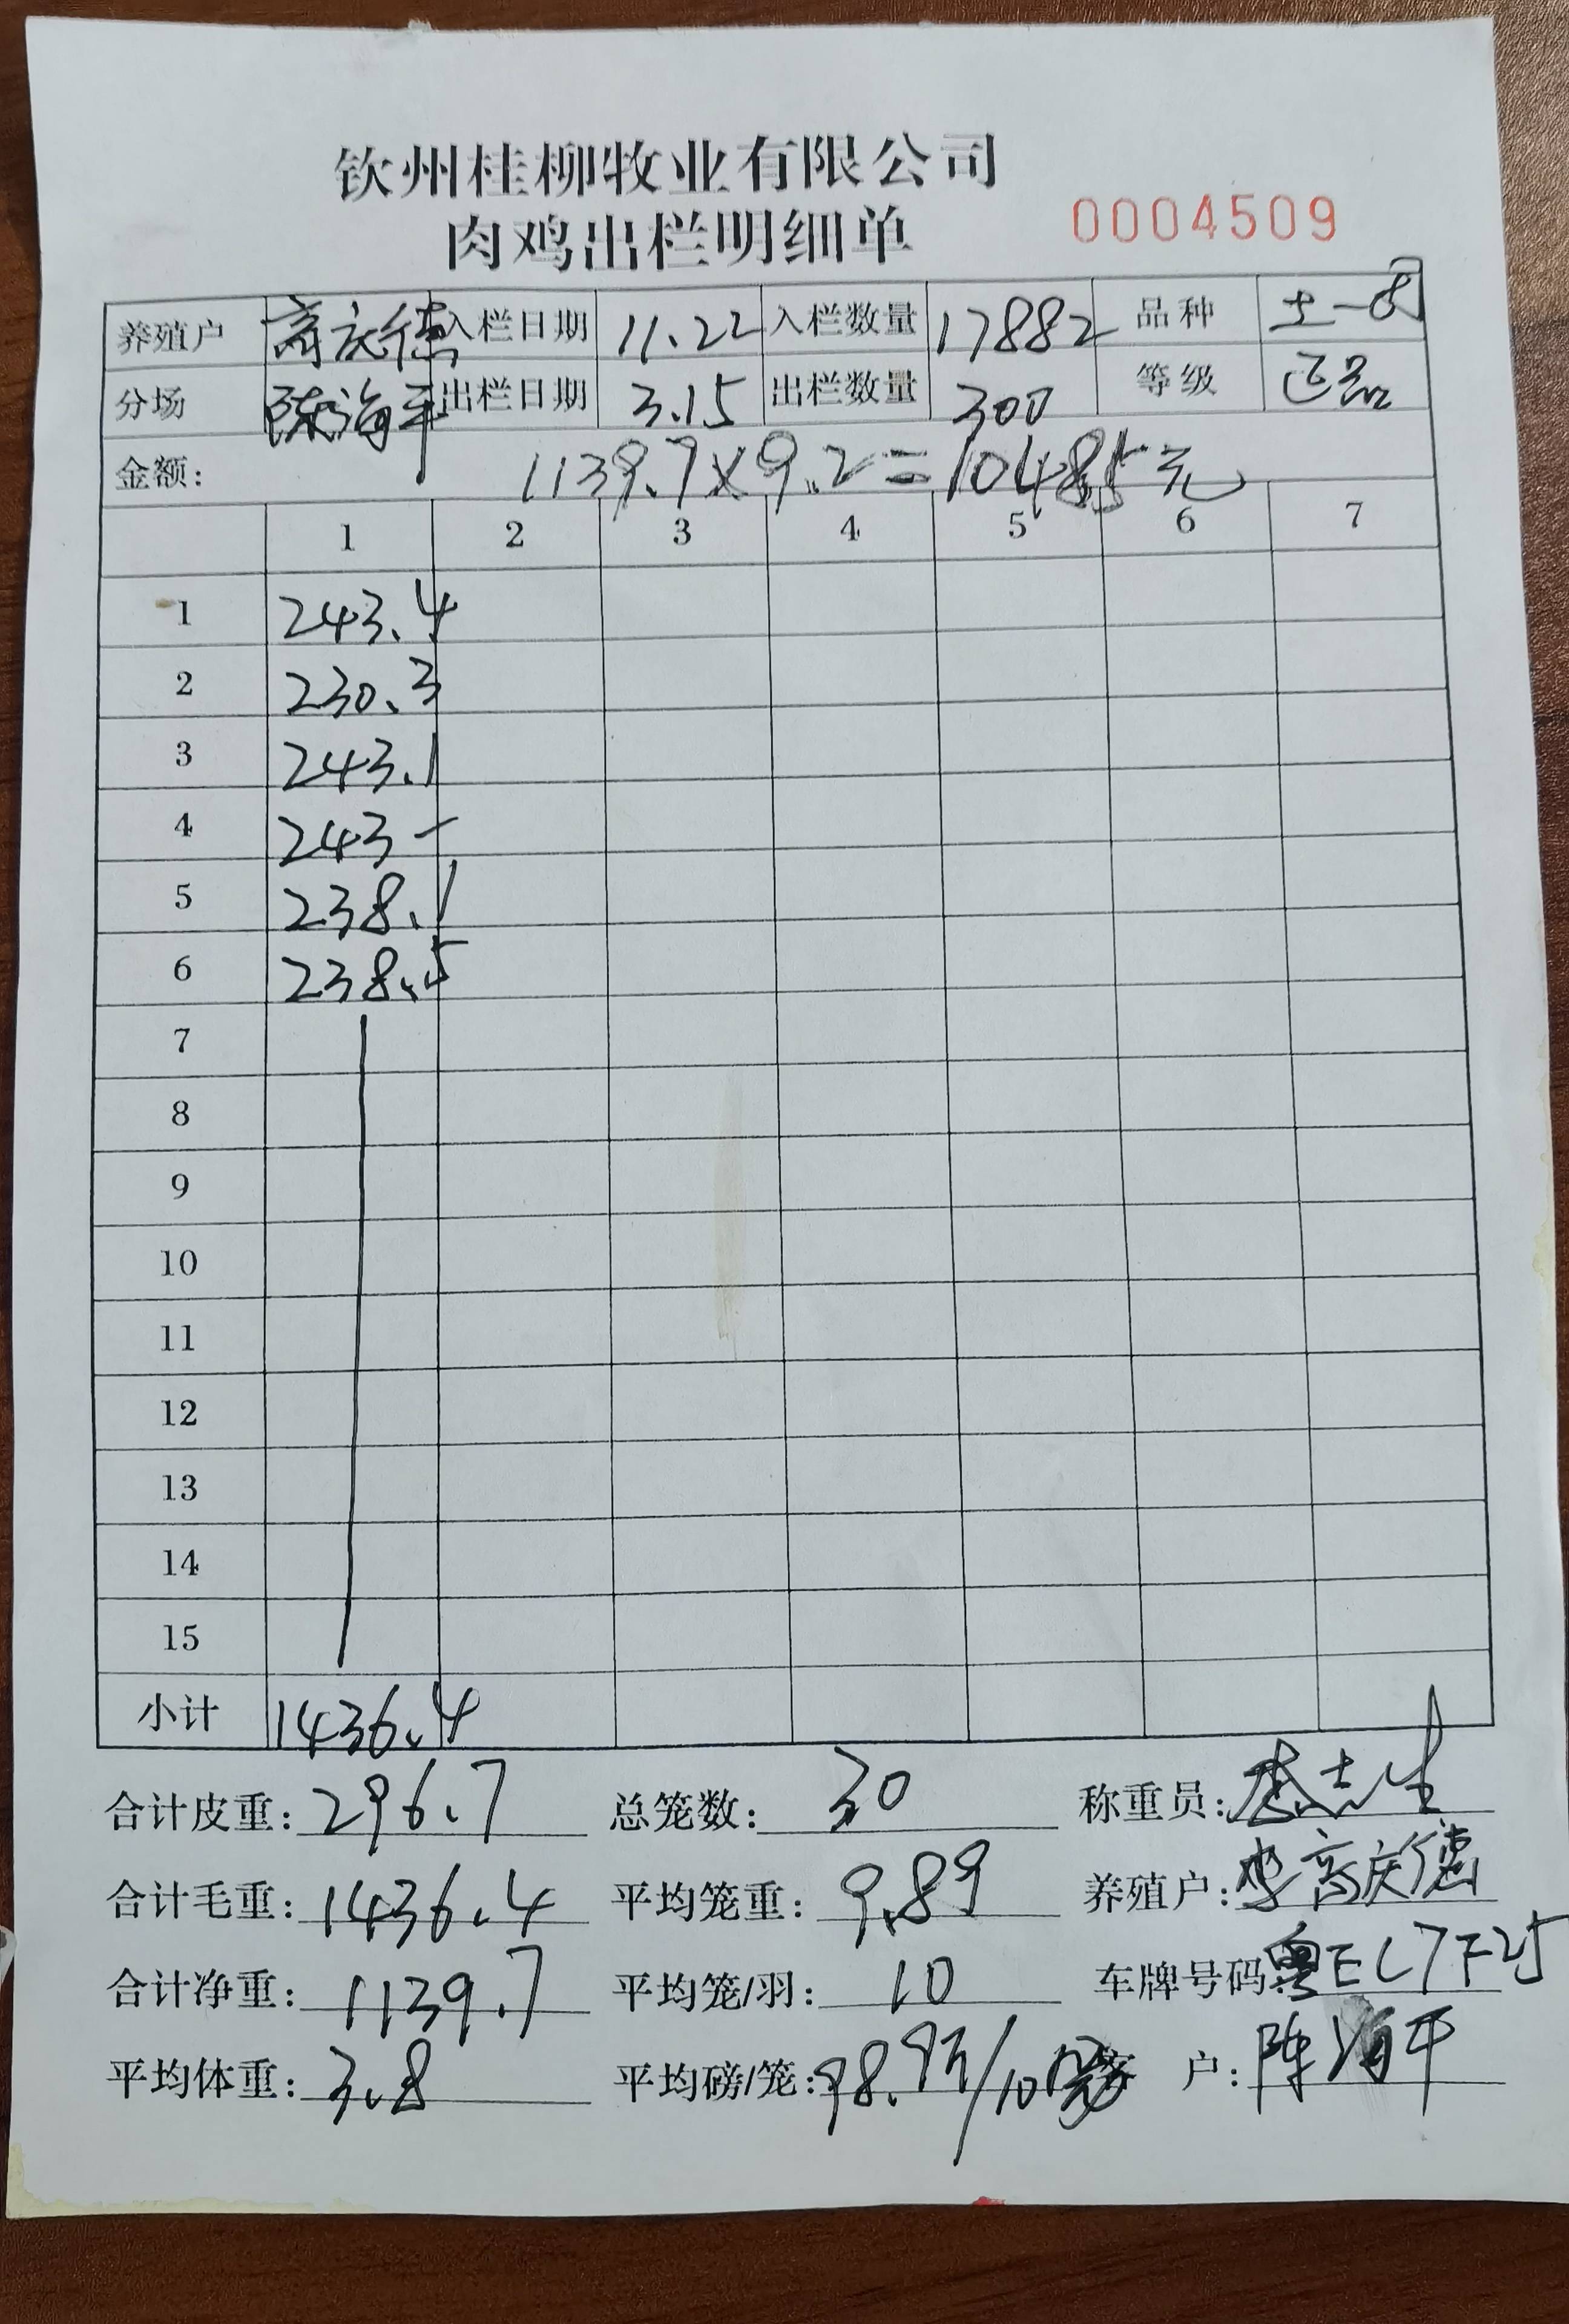 钦州桂柳牧业有限公司
肉鸡出栏明细单 0004509
养殖户 高庆德 入栏日期 11.22 入栏数量 17882 品种 土一
分场 陈海平 出栏日期 3.15 出栏数量 300 等级 正品
金额: 1139.7×9.2=10485元
1 2 3 4 5 6 7
1 243.4
2 230.3
3 243.1
4 243 -
5 238.1
6 238.5
7
8
9
10
11
12
13
14
15
小计 1436.4
合计皮重: 296.7 总笼数: 30 称重员: 志生
合计毛重: 1436.4 平均笼重: 9.89 养殖户: 高庆德
合计净重: 1139.7 平均笼/羽: 10 车牌号码: 粤EC7F25
平均体重: 3.8 平均磅/笼: 98.9斤/10 客户: 陈海平